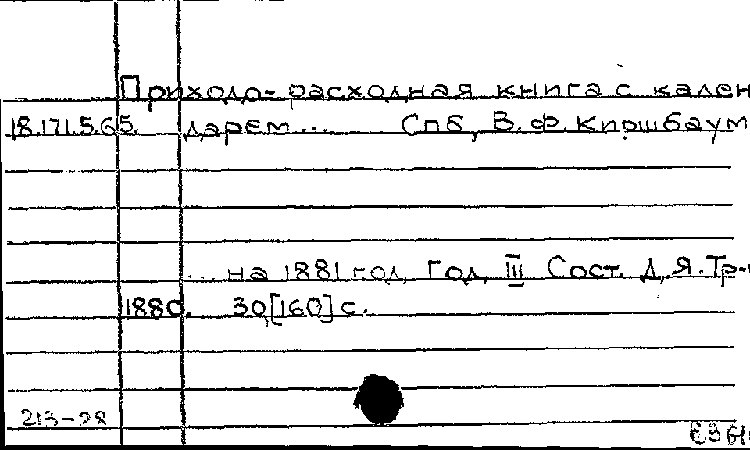 Приходо-расходная книга с кален
18.171.5.65. дарем... Спб, В.Ф.Киршбаум
... на 1881 год, Год III Сост. Д.Я.Тр-
1880. 30,[160]с.
213-98